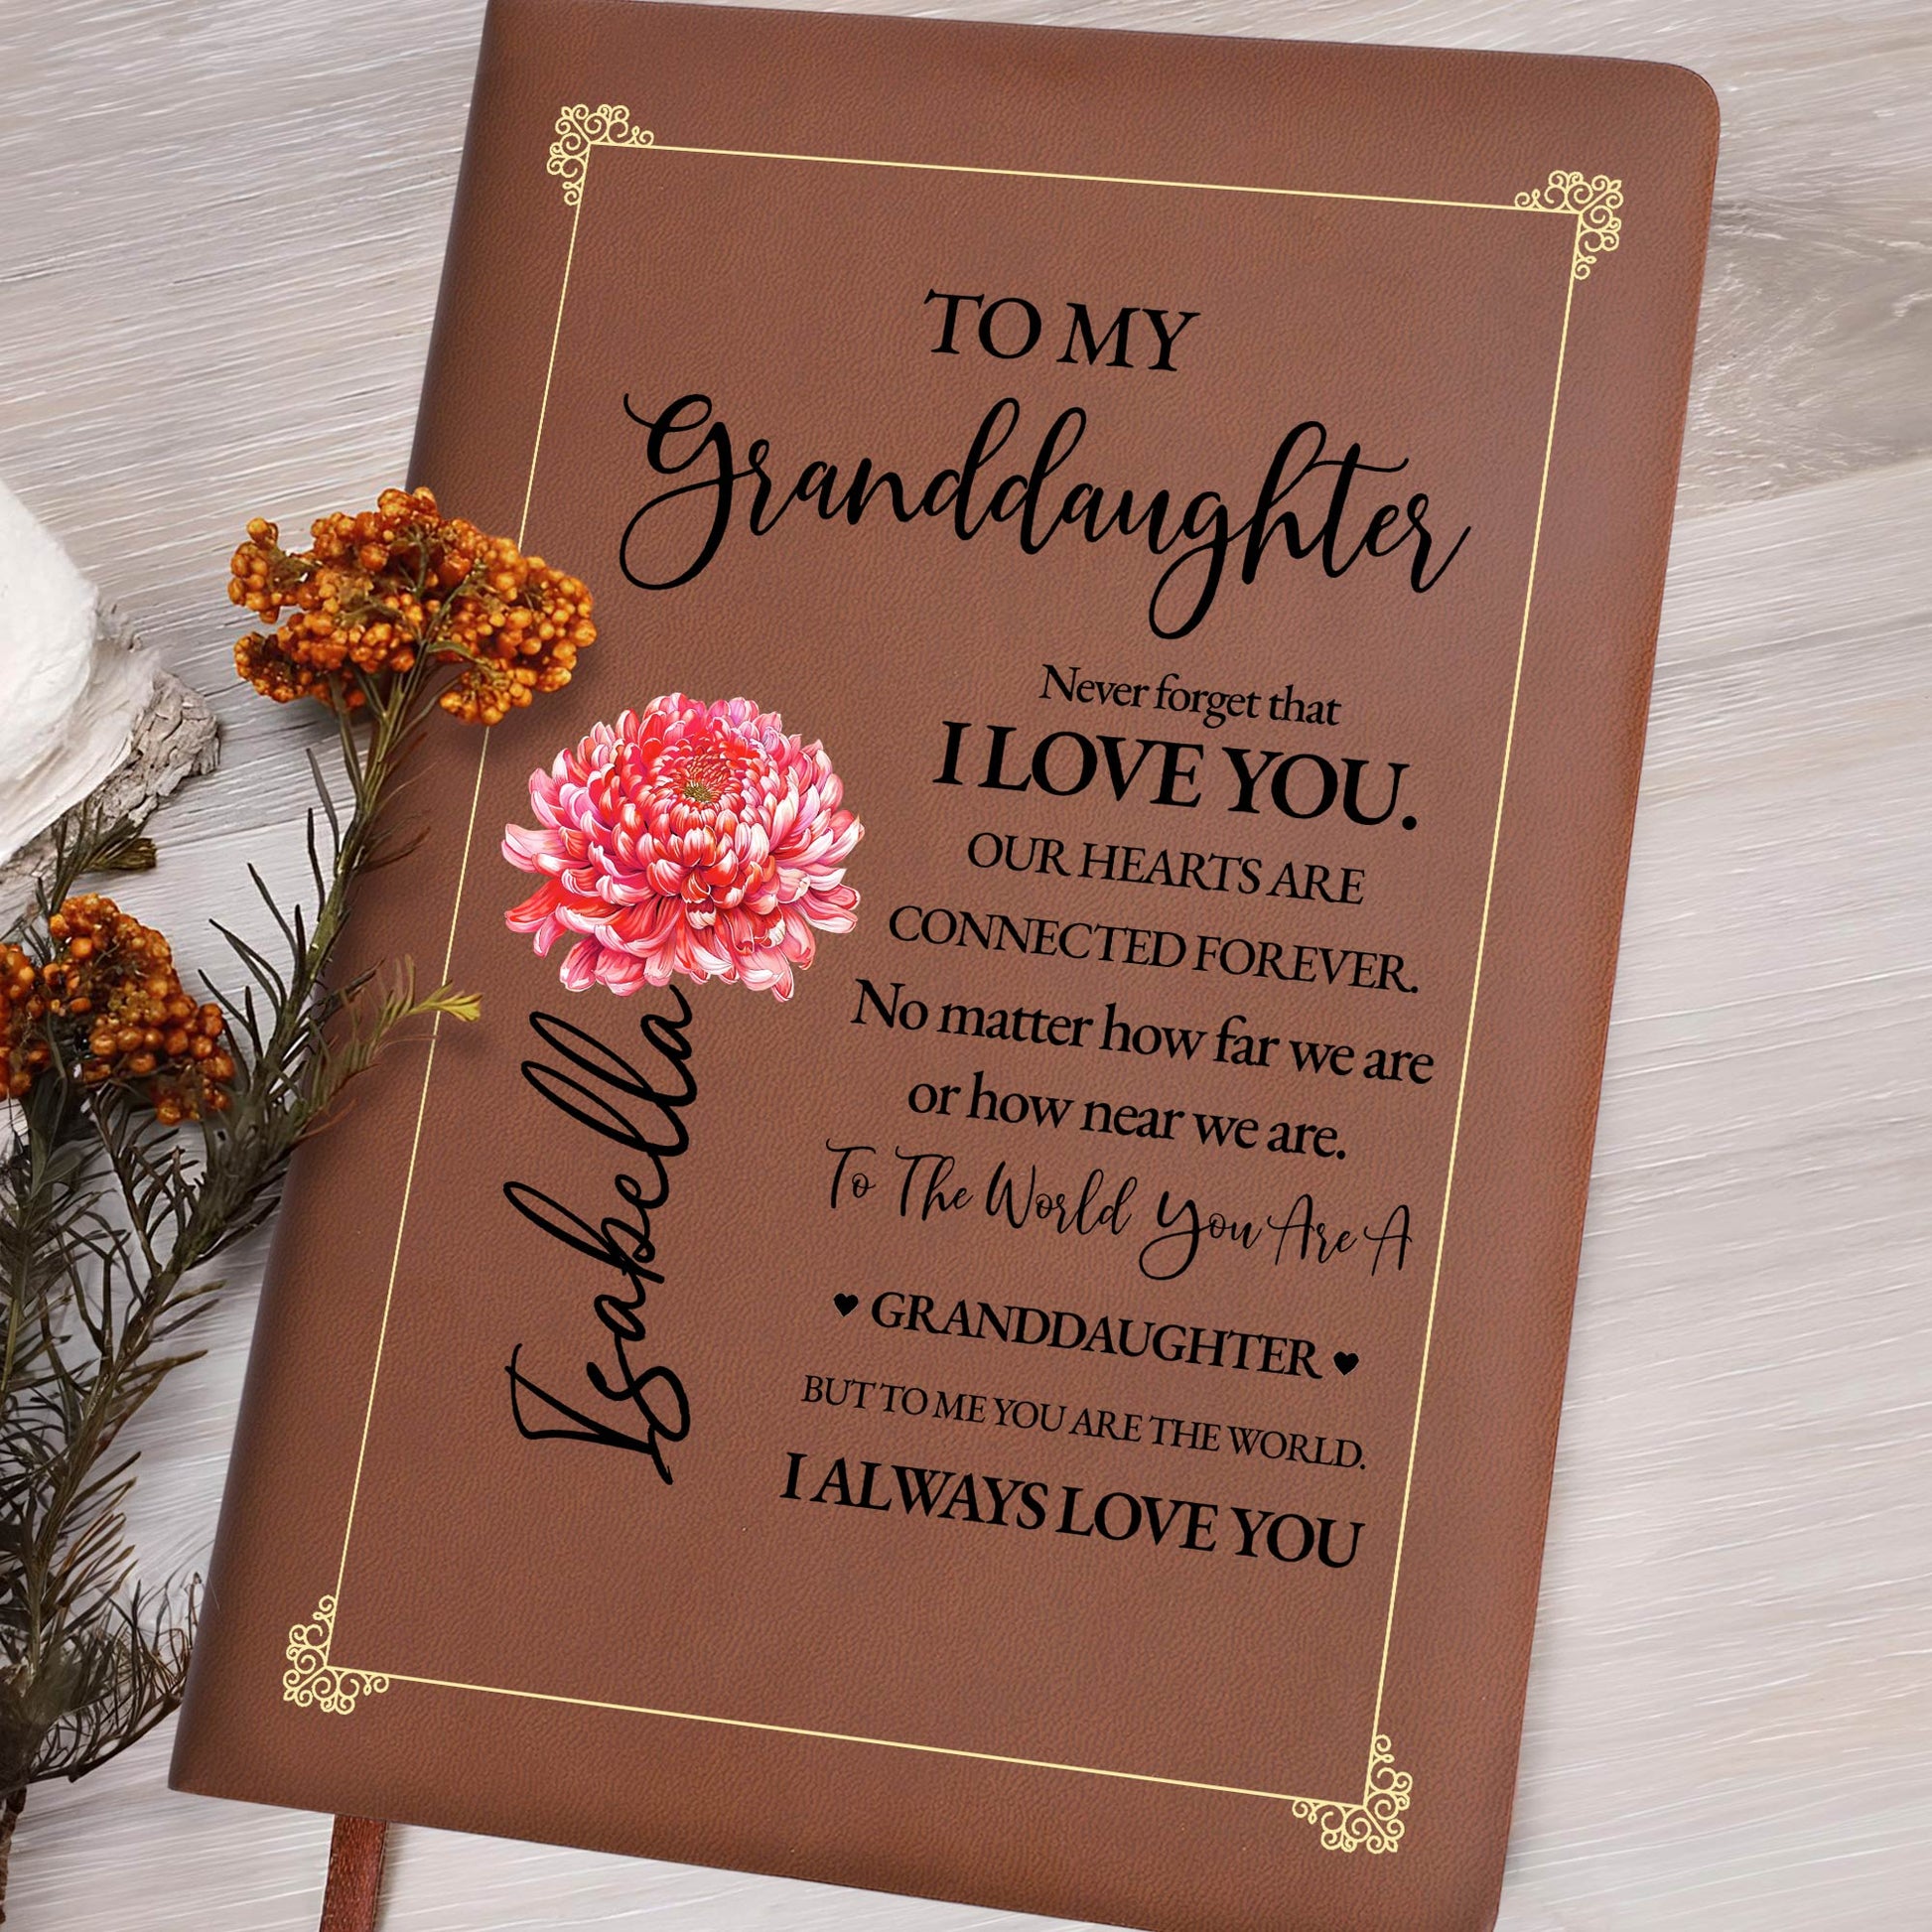 TO MY
Granddaughter
Never forget that
I LOVE YOU.
OUR HEARTS ARE
CONNECTED FOREVER.
No matter how far we are
or how near we are.
To The World You Are A
♥ GRANDDAUGHTER ♥
BUT TO ME YOU ARE THE WORLD.
I ALWAYS LOVE YOU
Isabella